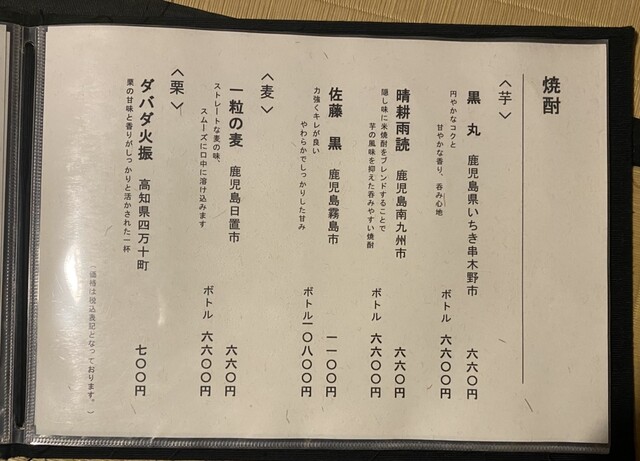 焼酎
〈芋〉
黒 丸 鹿児島県いちき串木野市 六六〇円
円やかなコクと
甘やかな香り、呑み心地
ボトル 六六〇〇円
晴耕雨読 鹿児島南九州市 六六〇円
隠し味に米焼酎をブレンドすることで
芋の風味を抑えた呑みやすい焼酎
ボトル 六六〇〇円
佐藤 黒 鹿児島霧島市 一一〇〇円
力強くキレが良い
やわらかでしっかりした甘み
ボトル一〇八〇〇円
〈麦〉
一粒の麦 鹿児島日置市 六六〇円
ストレートな麦の味、
スムーズに口中に溶け込みます
ボトル 六六〇〇円
〈栗〉
ダバダ火振 高知県四万十町 七〇〇円
栗の甘味と香りがしっかりと活かされた一杯
(価格は税込表記となっております。)